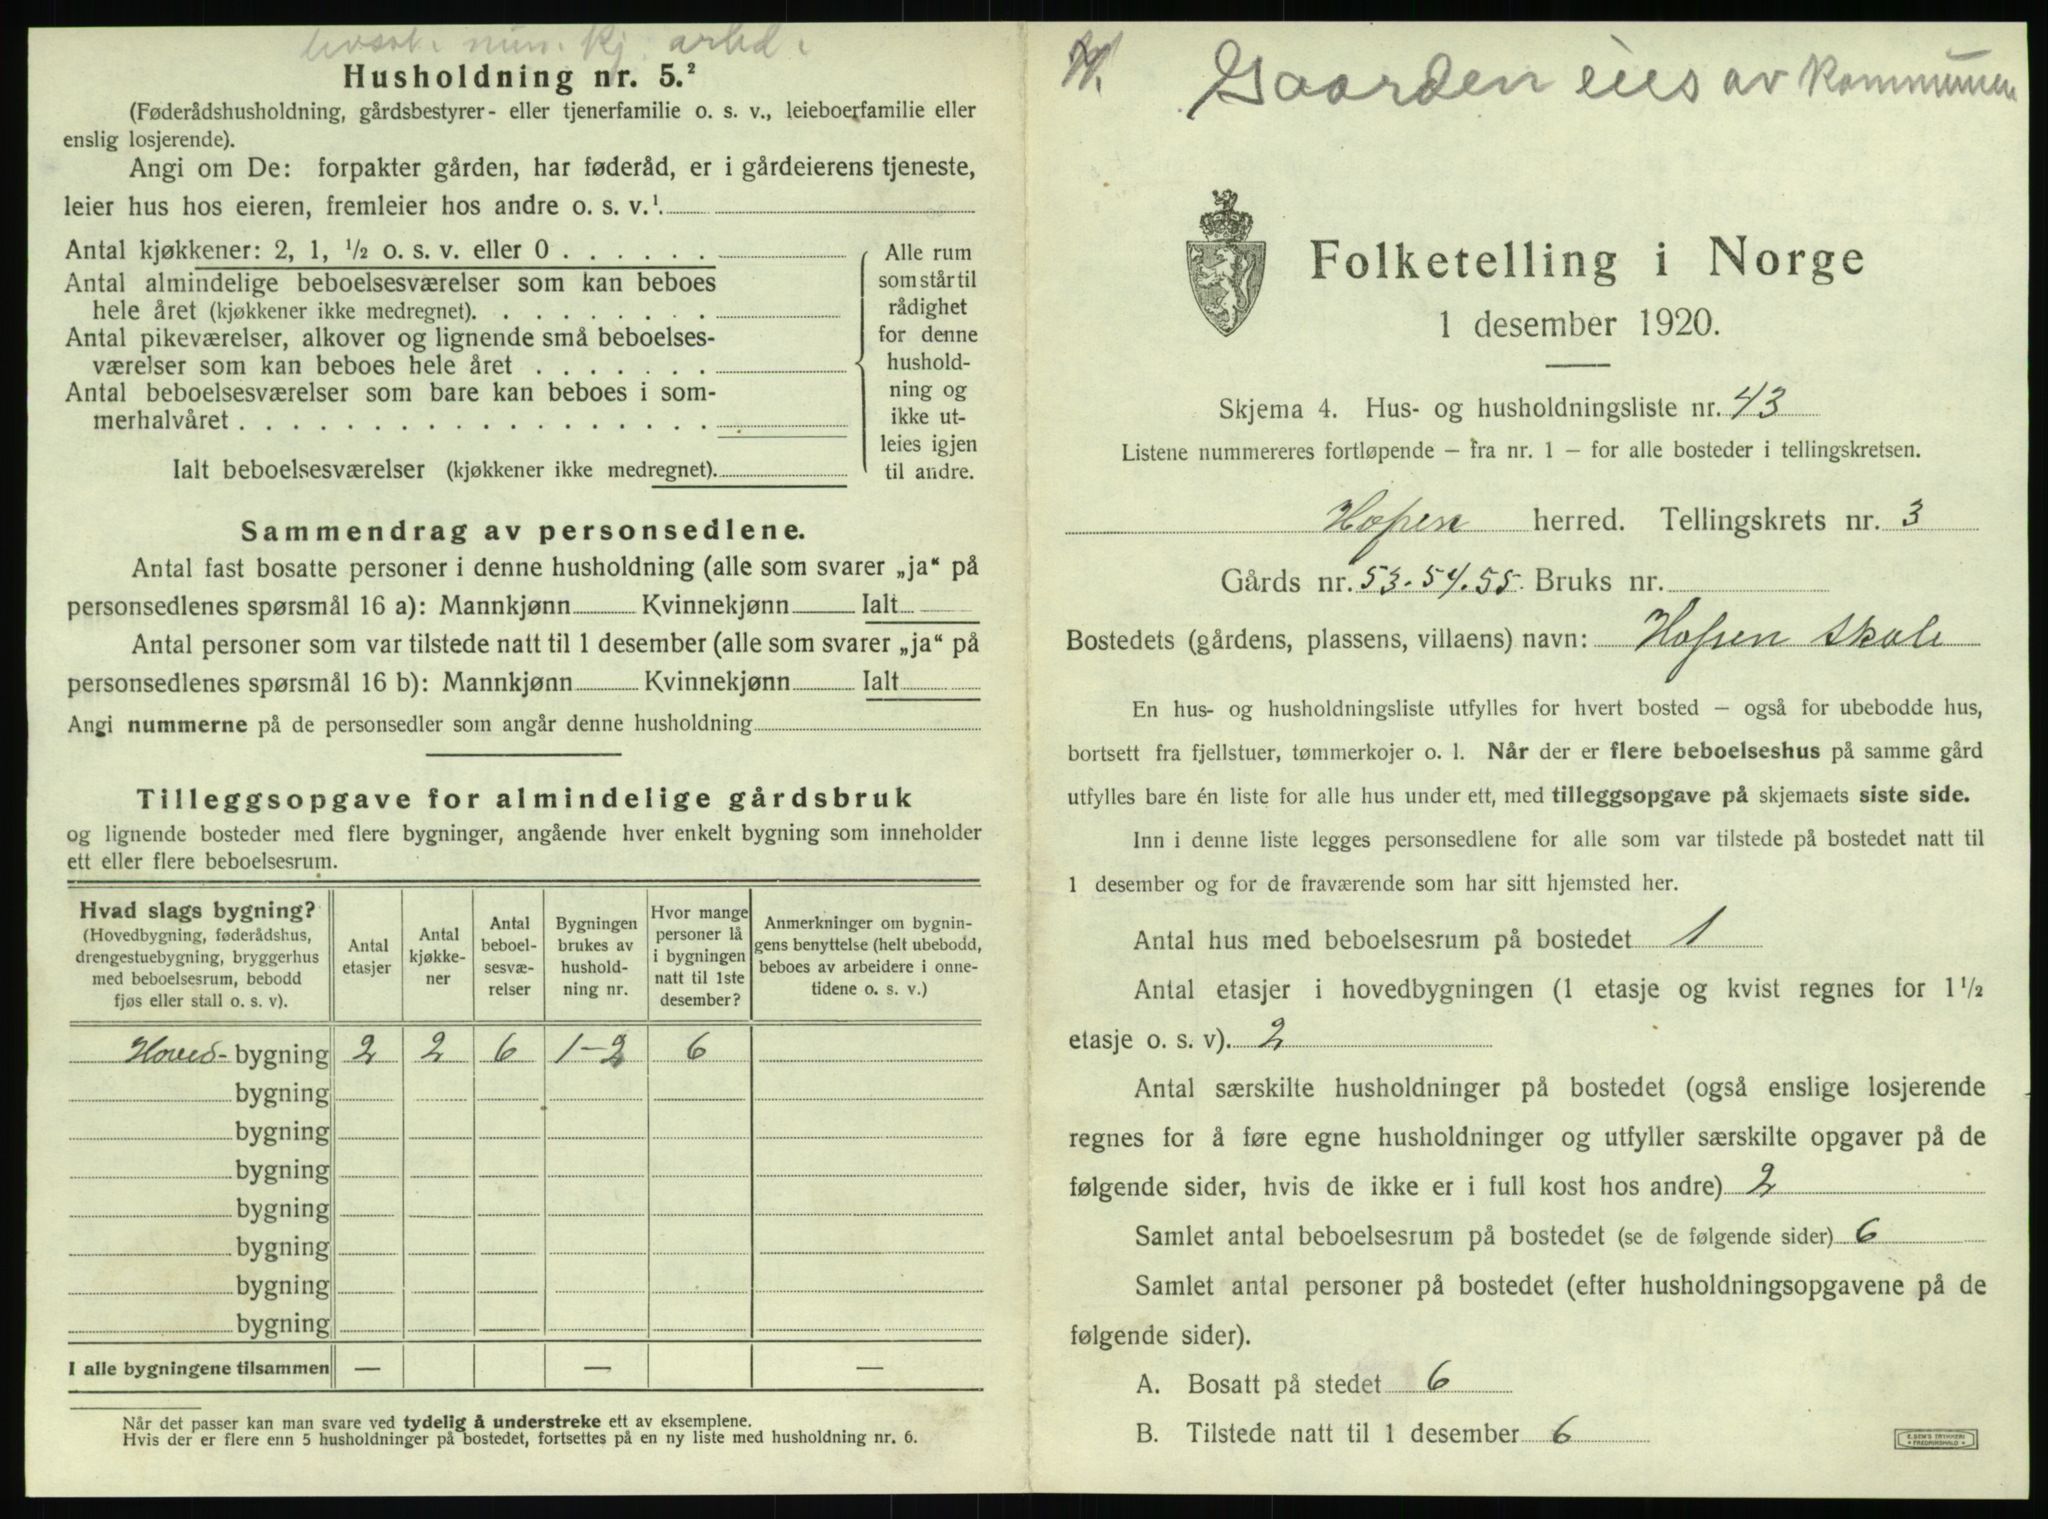 Husholdning nr. 5.²
(Føderådshusholdning, gårdsbestyrer- eller tjenerfamilie o. s. v., leieboerfamilie eller
enslig losjerende).
Angi om De: forpakter gården, har føderåd, er i gårdeierens tjeneste,
leier hus hos eieren, fremleier hos andre o. s. v.¹
Antal kjøkkener: 2, 1, ½ o. s. v. eller 0 . . . . . .
Antal almindelige beboelsesværelser som kan beboes
hele året (kjøkkener ikke medregnet). . . . . . . . .
Antal pikeværelser, alkover og lignende små beboelses-
værelser som kan beboes hele året . . . . . . .
Antal beboelsesværelser som bare kan beboes i som-
merhalvåret . . . . . . . . . . . . . . . . . .
Ialt beboelsesværelser (kjøkkener ikke medregnet).
Alle rum
som står til
rådighet
for denne
hushold-
ning og
ikke ut-
leies igjen
til andre.
Sammendrag av personsedlene.
Antal fast bosatte personer i denne husholdning (alle som svarer „ja“ på
personsedlenes spørsmål 16 a): Mannkjønn Kvinnekjønn Ialt
Antal personer som var tilstede natt til 1 desember (alle som svarer „ja“ på
personsedlenes spørsmål 16 b): Mannkjønn Kvinnekjønn Ialt
Angi nummerne på de personsedler som angår denne husholdning
Tilleggsopgave for almindelige gårdsbruk
og lignende bosteder med flere bygninger, angående hver enkelt bygning som inneholder
ett eller flere beboelsesrum.
Hvad slags bygning?
(Hovedbygning, føderådshus,
drengestuebygning, bryggerhus
med beboelsesrum, bebodd
fjøs eller stall o. s. v).
Antal
etasjer
Antal
kjøkke-
ner
Antal
beboel-
sesvæ-
relser
Bygningen
brukes av
hushold-
ning nr.
Hvor mange
personer lå
i bygningen
natt til 1ste
desember?
Anmerkninger om bygnin-
gens benyttelse (helt ubebodd,
beboes av arbeidere i onne-
tidene o. s. v.)
Hoved- bygning 2 2 6 1-2 6
bygning
bygning
bygning
bygning
bygning
bygning
bygning
I alle bygningene tilsammen — — —
Når det passer kan man svare ved tydelig å understreke ett av eksemplene.
Hvis der er flere enn 5 husholdninger på bostedet, fortsettes på en ny liste med husholdning nr. 6.
Gaarden eies av kommunen
Folketelling i Norge
1 desember 1920.
Skjema 4. Hus- og husholdningsliste nr. 43
Listene nummereres fortløpende – fra nr. 1 – for alle bosteder i tellingskretsen.
Hopen herred. Tellingskrets nr. 3
Gårds nr. 53-54.55 Bruks nr.
Bostedets (gårdens, plassens, villaens) navn: Hopen skole
En hus- og husholdningsliste utfylles for hvert bosted – også for ubebodde hus,
bortsett fra fjellstuer, tømmerkojer o. l. Når der er flere beboelseshus på samme gård
utfylles bare én liste for alle hus under ett, med tilleggsopgave på skjemaets siste side.
Inn i denne liste legges personsedlene for alle som var tilstede på bostedet natt til
1 desember og for de fraværende som har sitt hjemsted her.
Antal hus med beboelsesrum på bostedet 1
Antal etasjer i hovedbygningen (1 etasje og kvist regnes for 1½
etasje o. s. v). 2
Antal særskilte husholdninger på bostedet (også enslige losjerende
regnes for å føre egne husholdninger og utfyller særskilte opgaver på de
følgende sider, hvis de ikke er i full kost hos andre) 2
Samlet antal beboelsesrum på bostedet (se de følgende sider) 6
Samlet antal personer på bostedet (efter husholdningsopgavene på de
følgende sider).
A. Bosatt på stedet 6
B. Tilstede natt til 1 desember 6
E. SEM'S TRYKKERI
FREDRIKSHALD